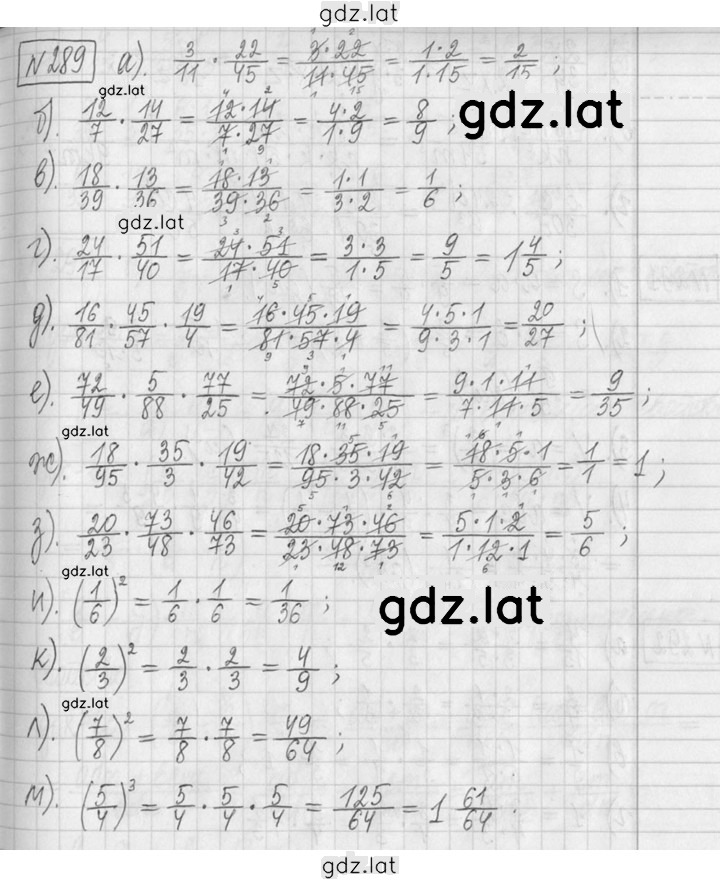 gdz.lat
N289 а). 3/11 · 22/45 = 3·22/11·45 = 1·2/1·15 = 2/15 ;
gdz.lat
б). 12/7 · 14/27 = 12·14/7·27 = 4·2/1·9 = 8/9 ;
gdz.lat
в). 18/39 · 13/36 = 18·13/39·36 = 1·1/3·2 = 1/6 ;
gdz.lat
г). 24/17 · 51/40 = 24·51/17·40 = 3·3/1·5 = 9/5 = 1 4/5 ;
д). 16/81 · 45/57 · 19/4 = 16·45·19/81·57·4 = 4·5·1/9·3·1 = 20/27 ;
е). 72/49 · 5/88 · 77/25 = 72·5·77/49·88·25 = 9·1·11/7·11·5 = 9/35 ;
gdz.lat
ж). 18/95 · 35/3 · 19/42 = 18·35·19/95·3·42 = 18·5·1/5·3·6 = 1/1 = 1 ;
з). 20/23 · 73/48 · 46/73 = 20·73·46/23·48·73 = 5·1·2/1·12·1 = 5/6 ;
gdz.lat
и). (1/6)² = 1/6 · 1/6 = 1/36 ;
gdz.lat
к). (2/3)² = 2/3 · 2/3 = 4/9 ;
gdz.lat
л). (7/8)² = 7/8 · 7/8 = 49/64 ;
м). (5/4)³ = 5/4 · 5/4 · 5/4 = 125/64 = 1 61/64 .
gdz.lat